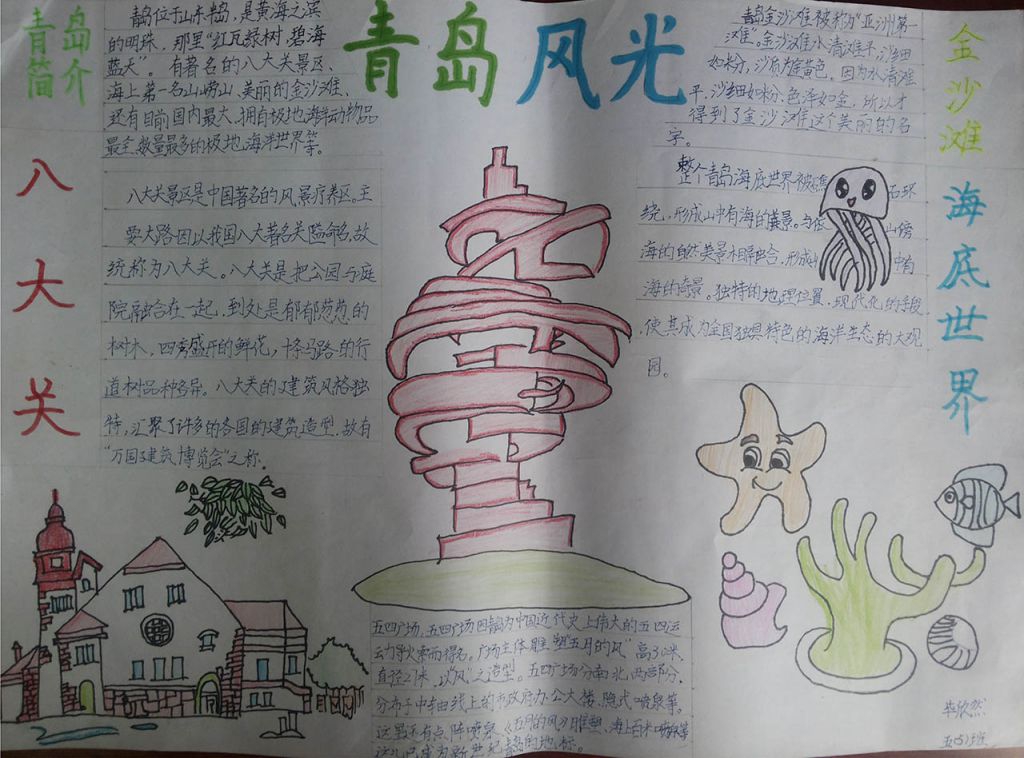 青岛风光
青岛
简介
青岛位于山东半岛，是黄海之滨
的明珠，那里“红瓦绿树，碧海
蓝天”。有著名的八大关景区、
海上第一名山崂山、美丽的金沙滩、
还有目前国内最大、拥有极地海洋动物品
最全、数量最多的极地海洋世界等。
八大关
八大关景区是中国著名的风景疗养区。主
要大路因以我国八大著名关隘命名，故
统称为八大关。八大关是把公园与庭
院融合在一起，到处是郁郁葱葱的
树木，四季盛开的鲜花，十条马路的行
道树品种各异。八大关的建筑风格独
特，汇聚了许多的各国的建筑造型，故有
“万国建筑博览会”之称。
五四广场，五四广场因青岛为中国近代史上伟大的五四运
动导火索而得名。广场主体雕塑五月的风”高30米，
直径27米，以“风”之造型。五四广场分南北两部分，
分布于中轴线上的市政府办公大楼、隐式喷泉等。
这里还有点阵喷泉《五月的风》雕塑，海上百米喷泉等
这儿已成为新世纪青岛的地标。
金沙滩
青岛金沙滩被称为“亚洲第一
滩”。金沙滩水清滩平，沙细
如粉，沙质为金黄色。因为水清滩
平，沙细如粉、色泽如金，所以才
得到了金沙滩这个美丽的名
字。
海底世界
整个青岛海底世界被 石环
绕，形成山中有海的美景。与依 山傍
海的自然美景相融合，形成 中有
海的奇景。独特的地理位置，现代化的手段
使其成为全国独具特色的海洋生态的大观
园。
毕欣然
五（5）班